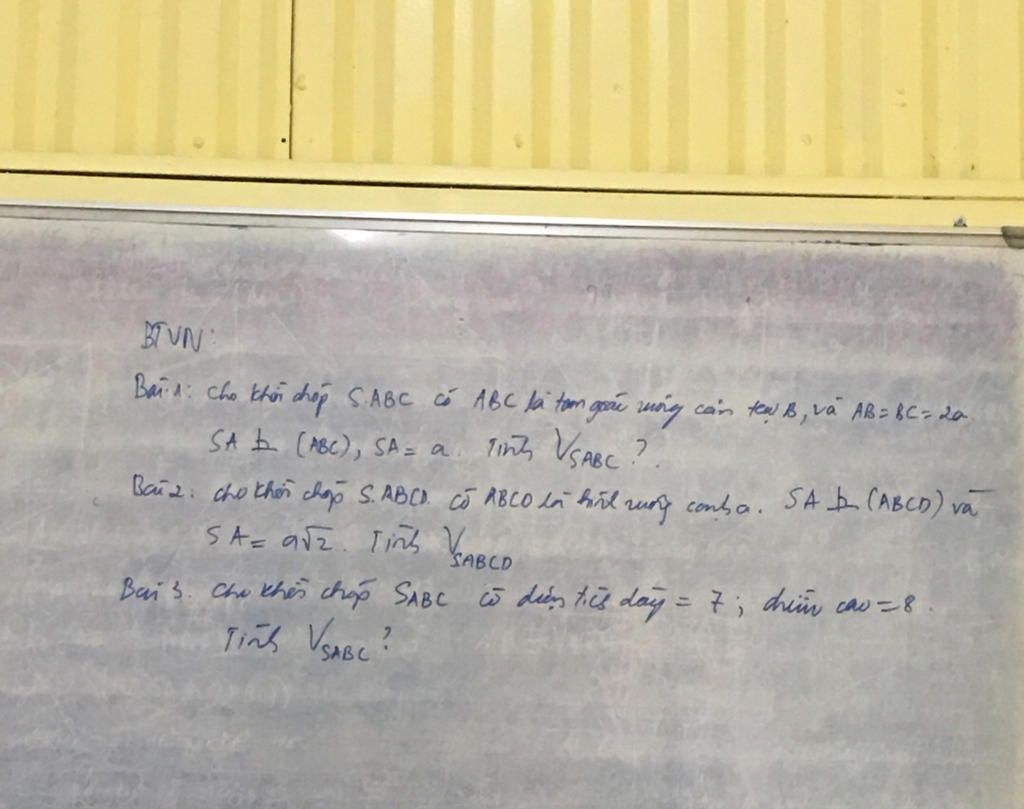 BTVN:
Bài 1: Cho khối chóp S.ABC có ABC là tam giác vuông cân tại B, và AB = BC = 2a.
SA ⊥ (ABC), SA = a. Tính V_SABC ?.
Bài 2: cho khối chóp S.ABCD. có ABCD là hình vuông cạnh a. SA ⊥ (ABCD) và
SA = a√2. Tính V_SABCD
Bài 3. Cho khối chóp SABC có diện tích đáy = 7; chiều cao = 8.
Tính V_SABC ?